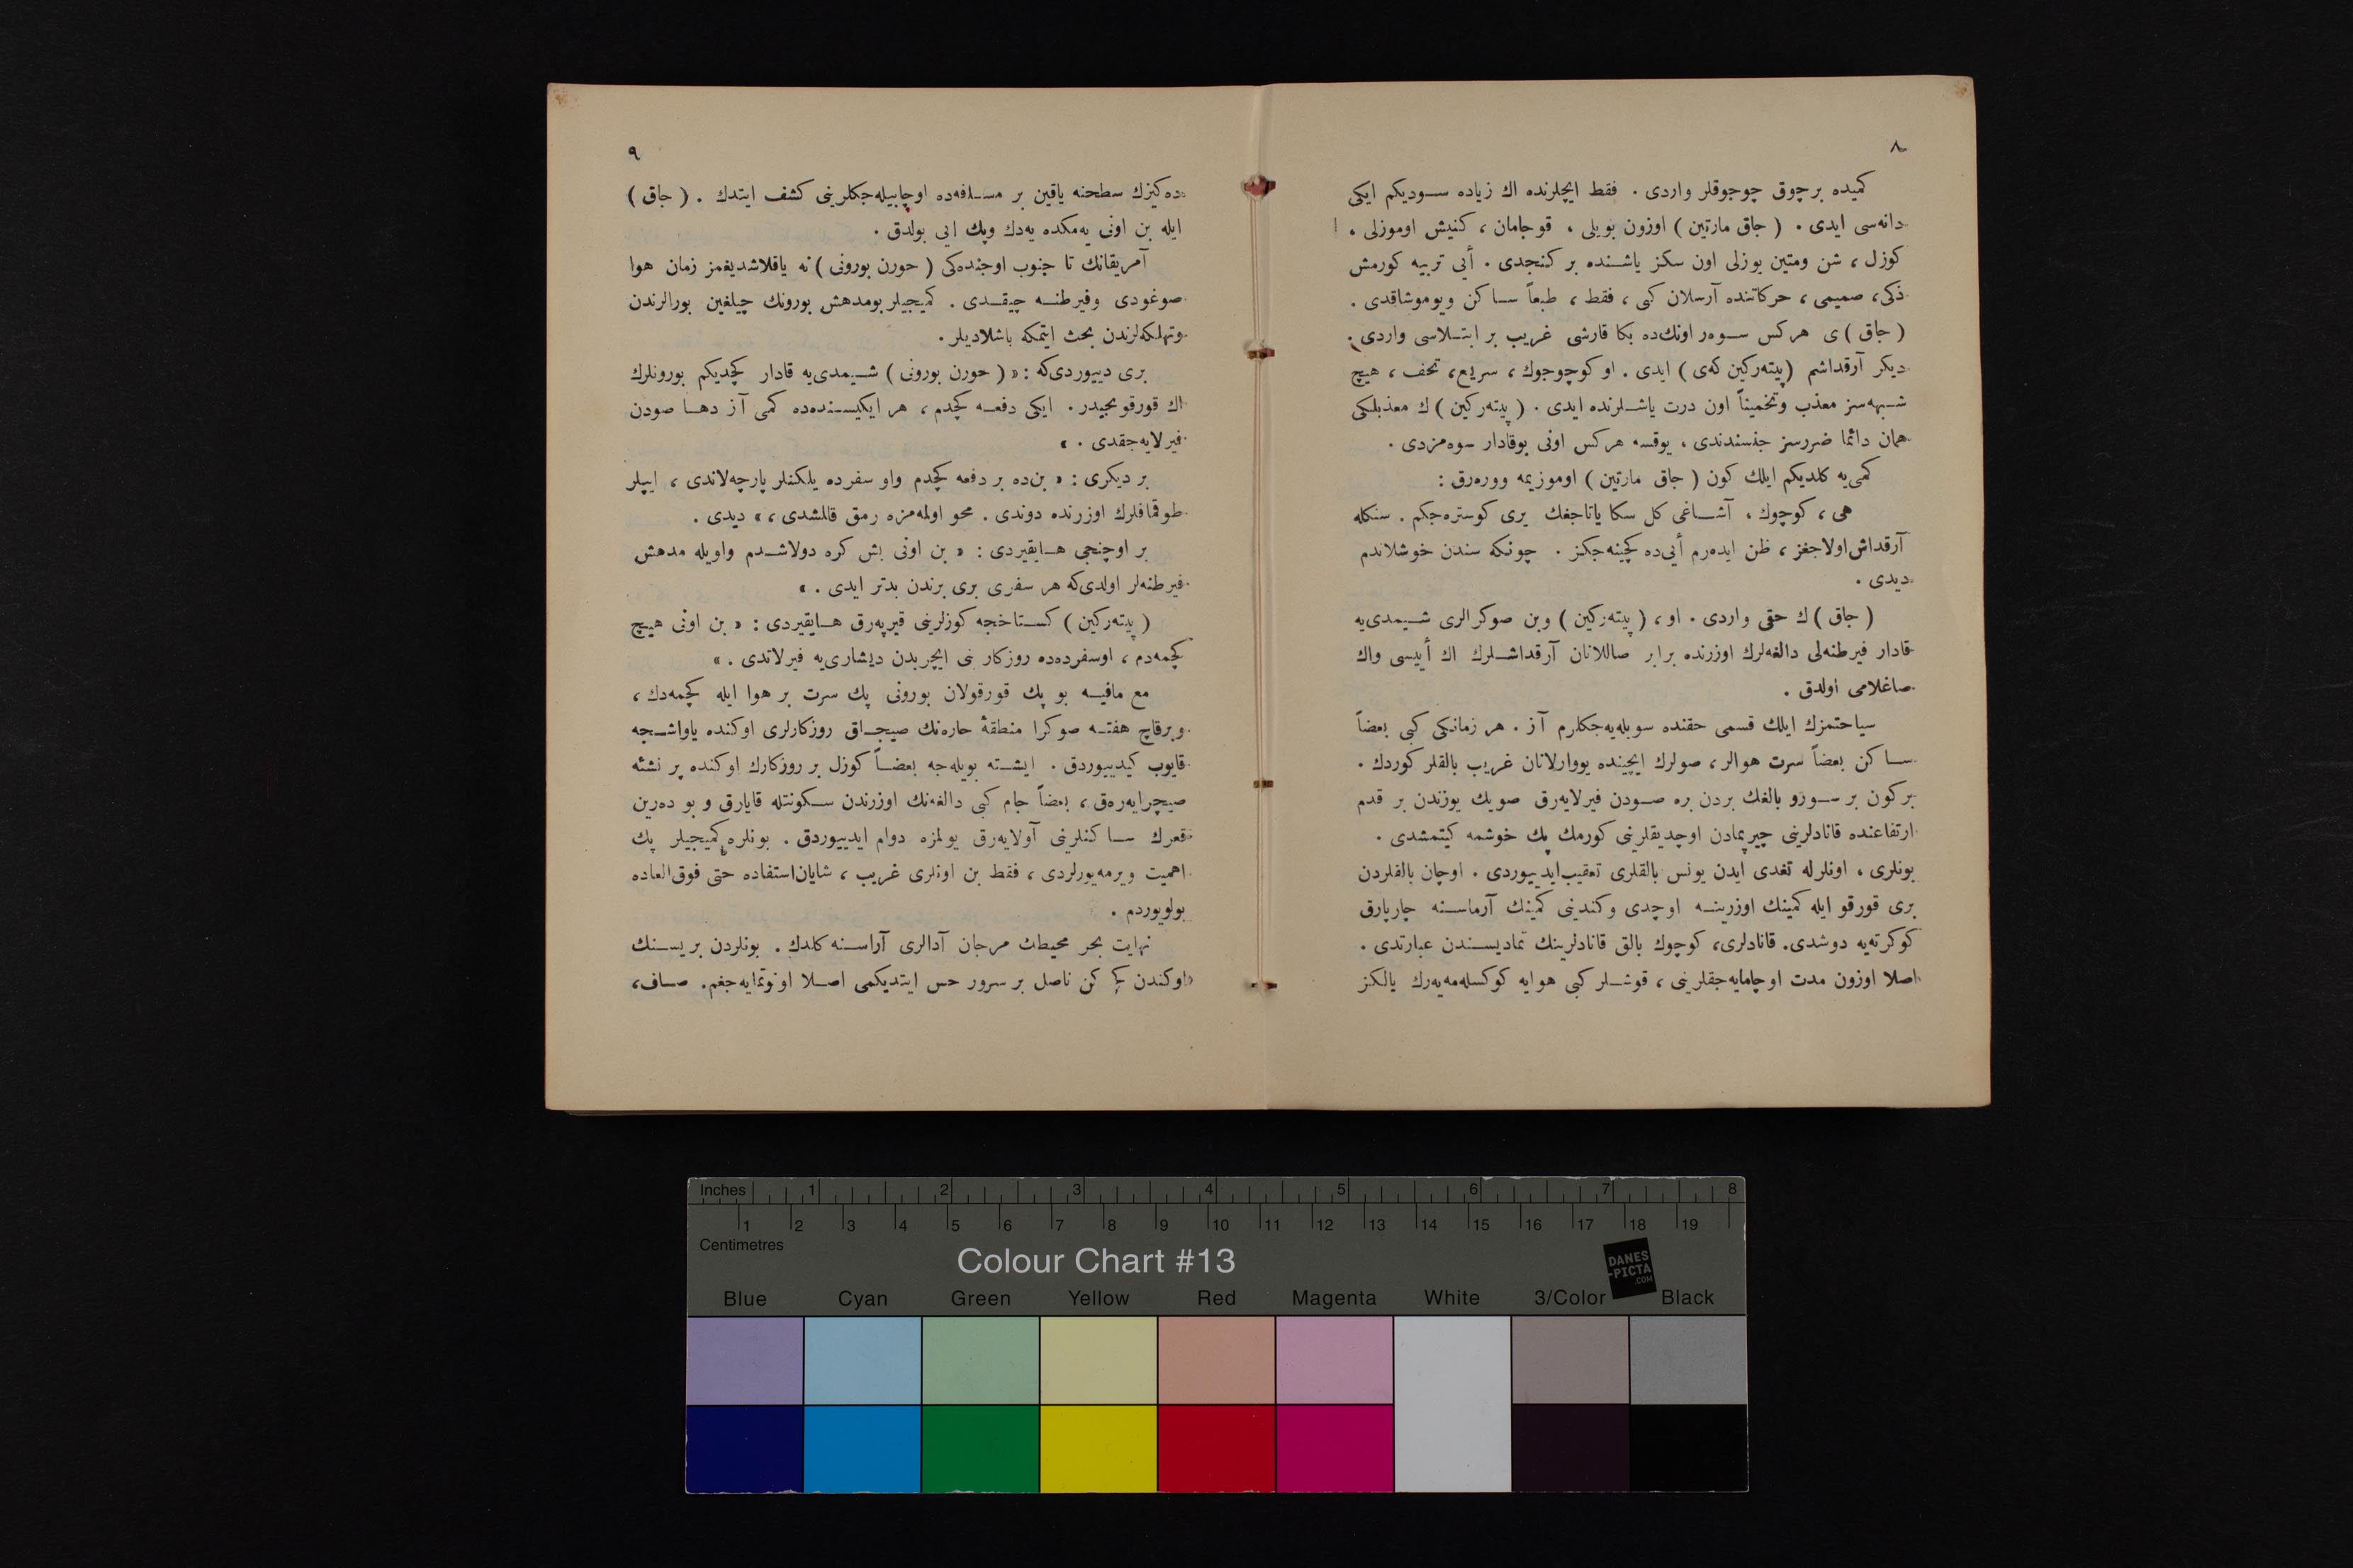 ٨
كميده بر چوق چوجوقلر واردی . فقط ايچلرنده اك زياده سوديكم ايكی
دانه‌سی ايدی . ( جاق مارتين ) اوزون بويلی ، قوجامان ، كنيش اوموزلی ،
كوزل ، شن ومتين يوزلی اون سكز ياشنده بر كنجدی . أيی تربيه كورمش
ذكی ، صميمی ، حركاتنده آرسلان كبی ، فقط ، طبعاً ساكن ويوموشاقدی .
( جاق ) ی هركس سوه‌ر اونك‌ده بكا قارشی غريب بر ابتلاسی واردی .
ديكر آرقداشم ( پيته‌ركين كه‌ی ) ايدی . او كوچوجوك ، سريع ، تحف ، هيچ
شبهه‌سز معذب وتخميناً اون درت ياشلرنده ايدی . ( پيته‌ركين ) ك معذبلكی
همان دائما ضررسز جنسندندی ، يوقسه هركس اونی بوقادار سوه‌مزدی .
كمی‌يه كلديكم ايلك كون ( جاق مارتين ) اوموزيمه ووره‌رق :
هی ، كوچوك ، آشاغی كل سكا ياتاجغك يری كوستره‌جكم . سنكله
آرقداش اولاجغز ، ظن ايده‌رم أيی‌ده كچينه‌جكز . چونكه سندن خوشلاندم
ديدی .
( جاق ) ك حقی واردی . او ، ( پيته‌ركين ) وبن صوكرالری شيمدی‌يه
قادار فيرطنه‌لی دالغه‌لرك اوزرنده برابر صاللانان آرقداشلرك اك أييسی واك
صاغلامی اولدق .
سياحتمزك ايلك قسمی حقنده سويله‌يه‌جكلرم آز . هر زمانكی كبی بعضاً
ساكن بعضاً سرت هوالر ، صولرك ايچينده يووارلانان غريب بالقلر كوردك .
بركون بر سورو بالغك بردن بره صودن فيرلايه‌رق صويك يوزندن بر قدم
ارتفاعنده قانادلرينی چيرپمادن اوچديقلرينی كورمك پك خوشمه كيتمشدی .
بونلری ، اونلرله تغدی ايدن يونس بالقلری تعقيب ايدييوردی . اوچان بالقلردن
بری قورقو ايله كمينك اوزرينه اوچدی وكندينی كمينك آرماسنه چارپارق
كوكرته‌يه دوشدی. قانادلری، كوچوك بالق قانادلرينك تماديسندن عبارتدی .
اصلا اوزون مدت اوچامايه‌جقلرينی ، قوشلر كبی هوايه كوكسله‌مه‌يه‌رك يالكز
٩
ده‌كيزك سطحنه ياقين بر مسافه‌ده اوچابيله‌جكلرينی كشف ايتدك . ( جاق )
ايله بن اونی يه‌مكده يه‌دك وپك ايی بولدق .
آمريقانك تا جنوب اوجنده‌كی ( حورن بورونی ) نه ياقلاشديغمز زمان هوا
صوغودی وفيرطنه چيقدی . كميجيلر بومدهش بورونك چيلغين بورالرندن
وتهلكه‌لرندن بحث ايتمكه باشلاديلر .
بری دييوردی‌كه : « ( حورن بورونی ) شيمدی‌يه قادار كچديكم بورونلرك
اك قورقونجيدر . ايكی دفعه كچدم ، هر ايكيسنده‌ده كمی آز دها صودن
فيرلايه‌جقدی . »
بر ديكری : « بن‌ده بر دفعه كچدم واو سفرده يلكنلر پارچه‌لاندی ، ايپلر
طوقمافلرك اوزرنده دوندی . محو اولمه‌مزه رمق قالمشدی ، » ديدی .
بر اوچنجی هايقيردی : « بن اونی بش كره دولاشدم واويله مدهش
فيرطنه‌لر اولدی‌كه هر سفری بری برندن بدتر ايدی . »
( پيته‌ركين ) كستاخجه كوزلرينی قيرپه‌رق هايقيردی : « بن اونی هيچ
كچمه‌دم ، اوسفرده‌ده روزكار بنی ايچريدن ديشاری‌يه فيرلاتدی . »
مع مافيه بو پك قورقولان بورونی پك سرت بر هوا ايله كچمه‌دك ،
وبرقاچ هفته صوكرا منطقهٔ حاره‌نك صيجاق روزكارلری اوكنده ياواشجه
قايوب كيدييوردق . ايشته بويله‌جه بعضاً كوزل بر روزكارك اوكنده پر نشئه
صيچرايه‌ره‌ق ، بعضاً جام كبی دالغه‌نك اوزرندن سكونتله قايارق و بو ده‌رين
قعرك ساكنلرينی آولايه‌رق يولمزه دوام ايدييوردق . بونلره كميجيلر پك
اهميت ويرمه‌يورلردی ، فقط بن اونلری غريب ، شايان‌استفاده حتی فوق‌العاده
بولويوردم .
نهايت بحر محيطك مرجان آدالری آراسنه كلدك . بونلردن بريسنك
اوكندن كچركن ناصل بر سرور حس ايتديكمی اصلا اونوتمايه‌جغم. صاف،
Inches 1 2 3 4 5 6 7 8
1 2 3 4 5 6 7 8 9 10 11 12 13 14 15 16 17 18 19
Centimetres
Colour Chart #13
DANES
-PICTA
.COM
Blue Cyan Green Yellow Red Magenta White 3/Color Black